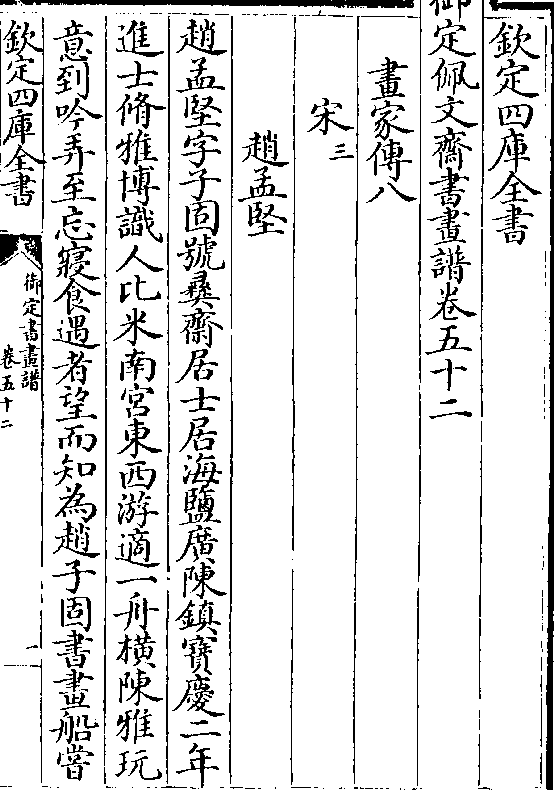 欽定四庫全書
御定佩文齋書畫譜卷五十二
畫家傳八
宋三
趙孟堅
趙孟堅字子固號彛齋居士居海鹽廣陳鎮寶慶二年
進士脩雅博識人比米南宮東西游適一舟橫陳雅玩
意到吟弄至忘寢食遇者望而知為趙子固書畫船嘗
欽定四庫全書
御定書畫譜
卷五十二
一